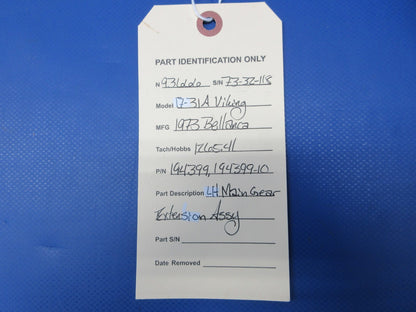 PART IDENTIFICATION ONLY
N 931ddo S/N 73-32-113
Model 17-31A Viking
MFG 1973 Bellanca
Tach/Hobbs 1265.41
P/N 194399, 194399-10
Part Description LH Main Gear
Extension Assy
Part S/N
Date Removed